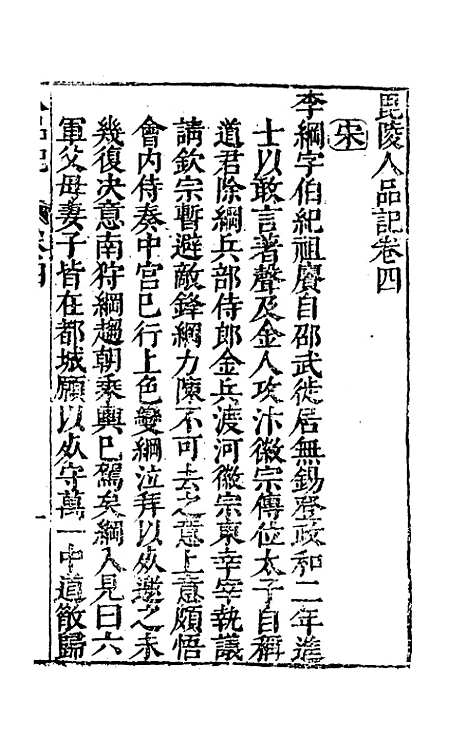 毘陵人品記卷四
宋
李綱字伯紀祖賡自邵武徙居無錫登政和二年進
士以敢言著聲及金人攻汴徽宗傳位太子自稱
道君除綱兵部侍郎金兵渡河徽宗東幸宰執議
請欽宗暫避敵鋒綱力陳不可去之意上意頗悟
會內侍奏中宮已行上色變綱泣拜以死邀之未
幾復決意南狩綱趨朝乘輿已駕矣綱入見曰六
軍父母妻子皆在都城願以死守萬一中道散歸
卷四
一